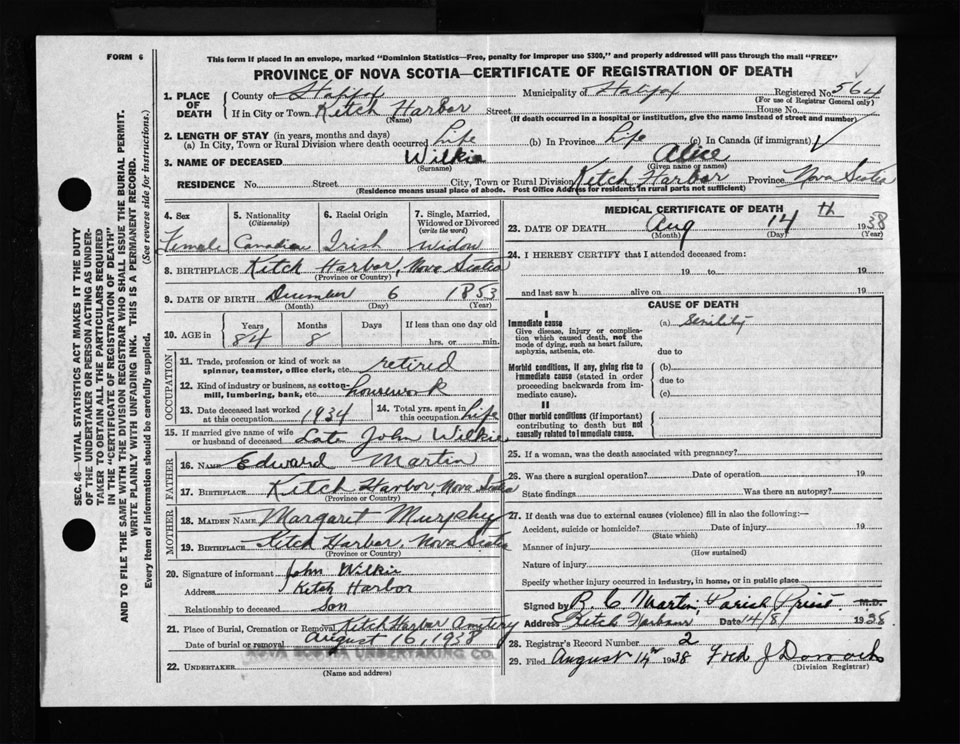 FORM 6
This form if placed in an envelope, marked "Dominion Statistics—Free, penalty for improper use $300," and properly addressed will pass through the mail "FREE"
PROVINCE OF NOVA SCOTIA—CERTIFICATE OF REGISTRATION OF DEATH
1. PLACE OF DEATH
County of Halifax Municipality of Halifax Registered No. 564
(For use of Registrar General only)
If in City or Town Ketch Harbor Street House No.
(Name) (If death occurred in a hospital or institution, give the name instead of street and number)
2. LENGTH OF STAY (in years, months and days)
(a) In City, Town or Rural Division where death occurred Life (b) In Province Life (c) In Canada (if immigrant)
3. NAME OF DECEASED Wilkie Alice
(Surname) (Given name or names)
RESIDENCE No. Street City, Town or Rural Division Ketch Harbor Province Nova Scotia
(Residence means usual place of abode. Post Office Address for residents in rural parts not sufficient)
4. Sex Female
5. Nationality (Citizenship) Canadian
6. Racial Origin Irish
7. Single, Married, Widowed or Divorced (write the word) Widow
8. BIRTHPLACE Ketch Harbor, Nova Scotia
(Province or Country)
9. DATE OF BIRTH December 6 1853
(Month) (Day) (Year)
10. AGE in Years Months Days If less than one day old
84 8 hrs. or min.
OCCUPATION
11. Trade, profession or kind of work as spinner, teamster, office clerk, etc. retired
12. Kind of industry or business, as cotton-mill, lumbering, bank, etc. housework
13. Date deceased last worked at this occupation 1934
14. Total yrs. spent in this occupation Life
15. If married give name of wife or husband of deceased Late John Wilkie
FATHER
16. NAME Edward Martin
17. BIRTHPLACE Ketch Harbor, Nova Scotia
(Province or Country)
MOTHER
18. MAIDEN NAME Margaret Murphy
19. BIRTHPLACE Ketch Harbor, Nova Scotia
(Province or Country)
20. Signature of informant John Wilkie
Address Ketch Harbor
Relationship to deceased Son
21. Place of Burial, Cremation or Removal Ketch Harbor
Date of burial or removal August 16, 1938
NOVA SCOTIA UNDERTAKING CO.
22. UNDERTAKER
(Name and address)
MEDICAL CERTIFICATE OF DEATH
23. DATE OF DEATH Aug 14th 1938
(Month) (Day) (Year)
24. I HEREBY CERTIFY that I attended deceased from:
19 to 19
and last saw h alive on 19
CAUSE OF DEATH
I
Immediate cause (a) Senility
Give disease, injury or complication which caused death, not the mode of dying, such as heart failure, asphyxia, asthenia, etc.
due to
Morbid conditions, if any, giving rise to immediate cause (stated in order proceeding backwards from immediate cause).
(b)
due to
(c)
II
Other morbid conditions (if important) contributing to death but not causally related to immediate cause.
25. If a woman, was the death associated with pregnancy?
26. Was there a surgical operation? Date of operation 19
State findings Was there an autopsy?
27. If death was due to external causes (violence) fill in also the following:—
Accident, suicide or homicide? Date of injury 19
(State which)
Manner of injury
(How sustained)
Nature of injury
Specify whether injury occurred in industry, in home, or in public place
Signed by R. C Martin, Parish Priest M.D.
Address Ketch Harbour Date 14/8/ 1938
28. Registrar's Record Number 2
29. Filed August 14 1938 Fred J
(Division Registrar)
SEC. 46—VITAL STATISTICS ACT MAKES IT THE DUTY
OF THE UNDERTAKER OR PERSON ACTING AS UNDER-
TAKER TO OBTAIN ALL THE PARTICULARS REQUIRED
IN THE "CERTIFICATE OF REGISTRATION OF DEATH"
AND TO FILE THE SAME WITH THE DIVISION REGISTRAR WHO SHALL ISSUE THE BURIAL PERMIT.
WRITE PLAINLY WITH UNFADING INK. THIS IS A PERMANENT RECORD.
Every item of information should be carefully supplied. (See reverse side for instructions.)